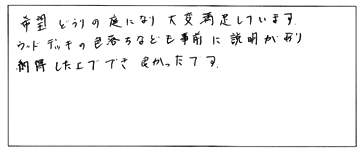 希望どうりの庭になり大変満足しています。
ウッドデッキの色落ちなども事前に説明があり
納得した上でき良かったです。